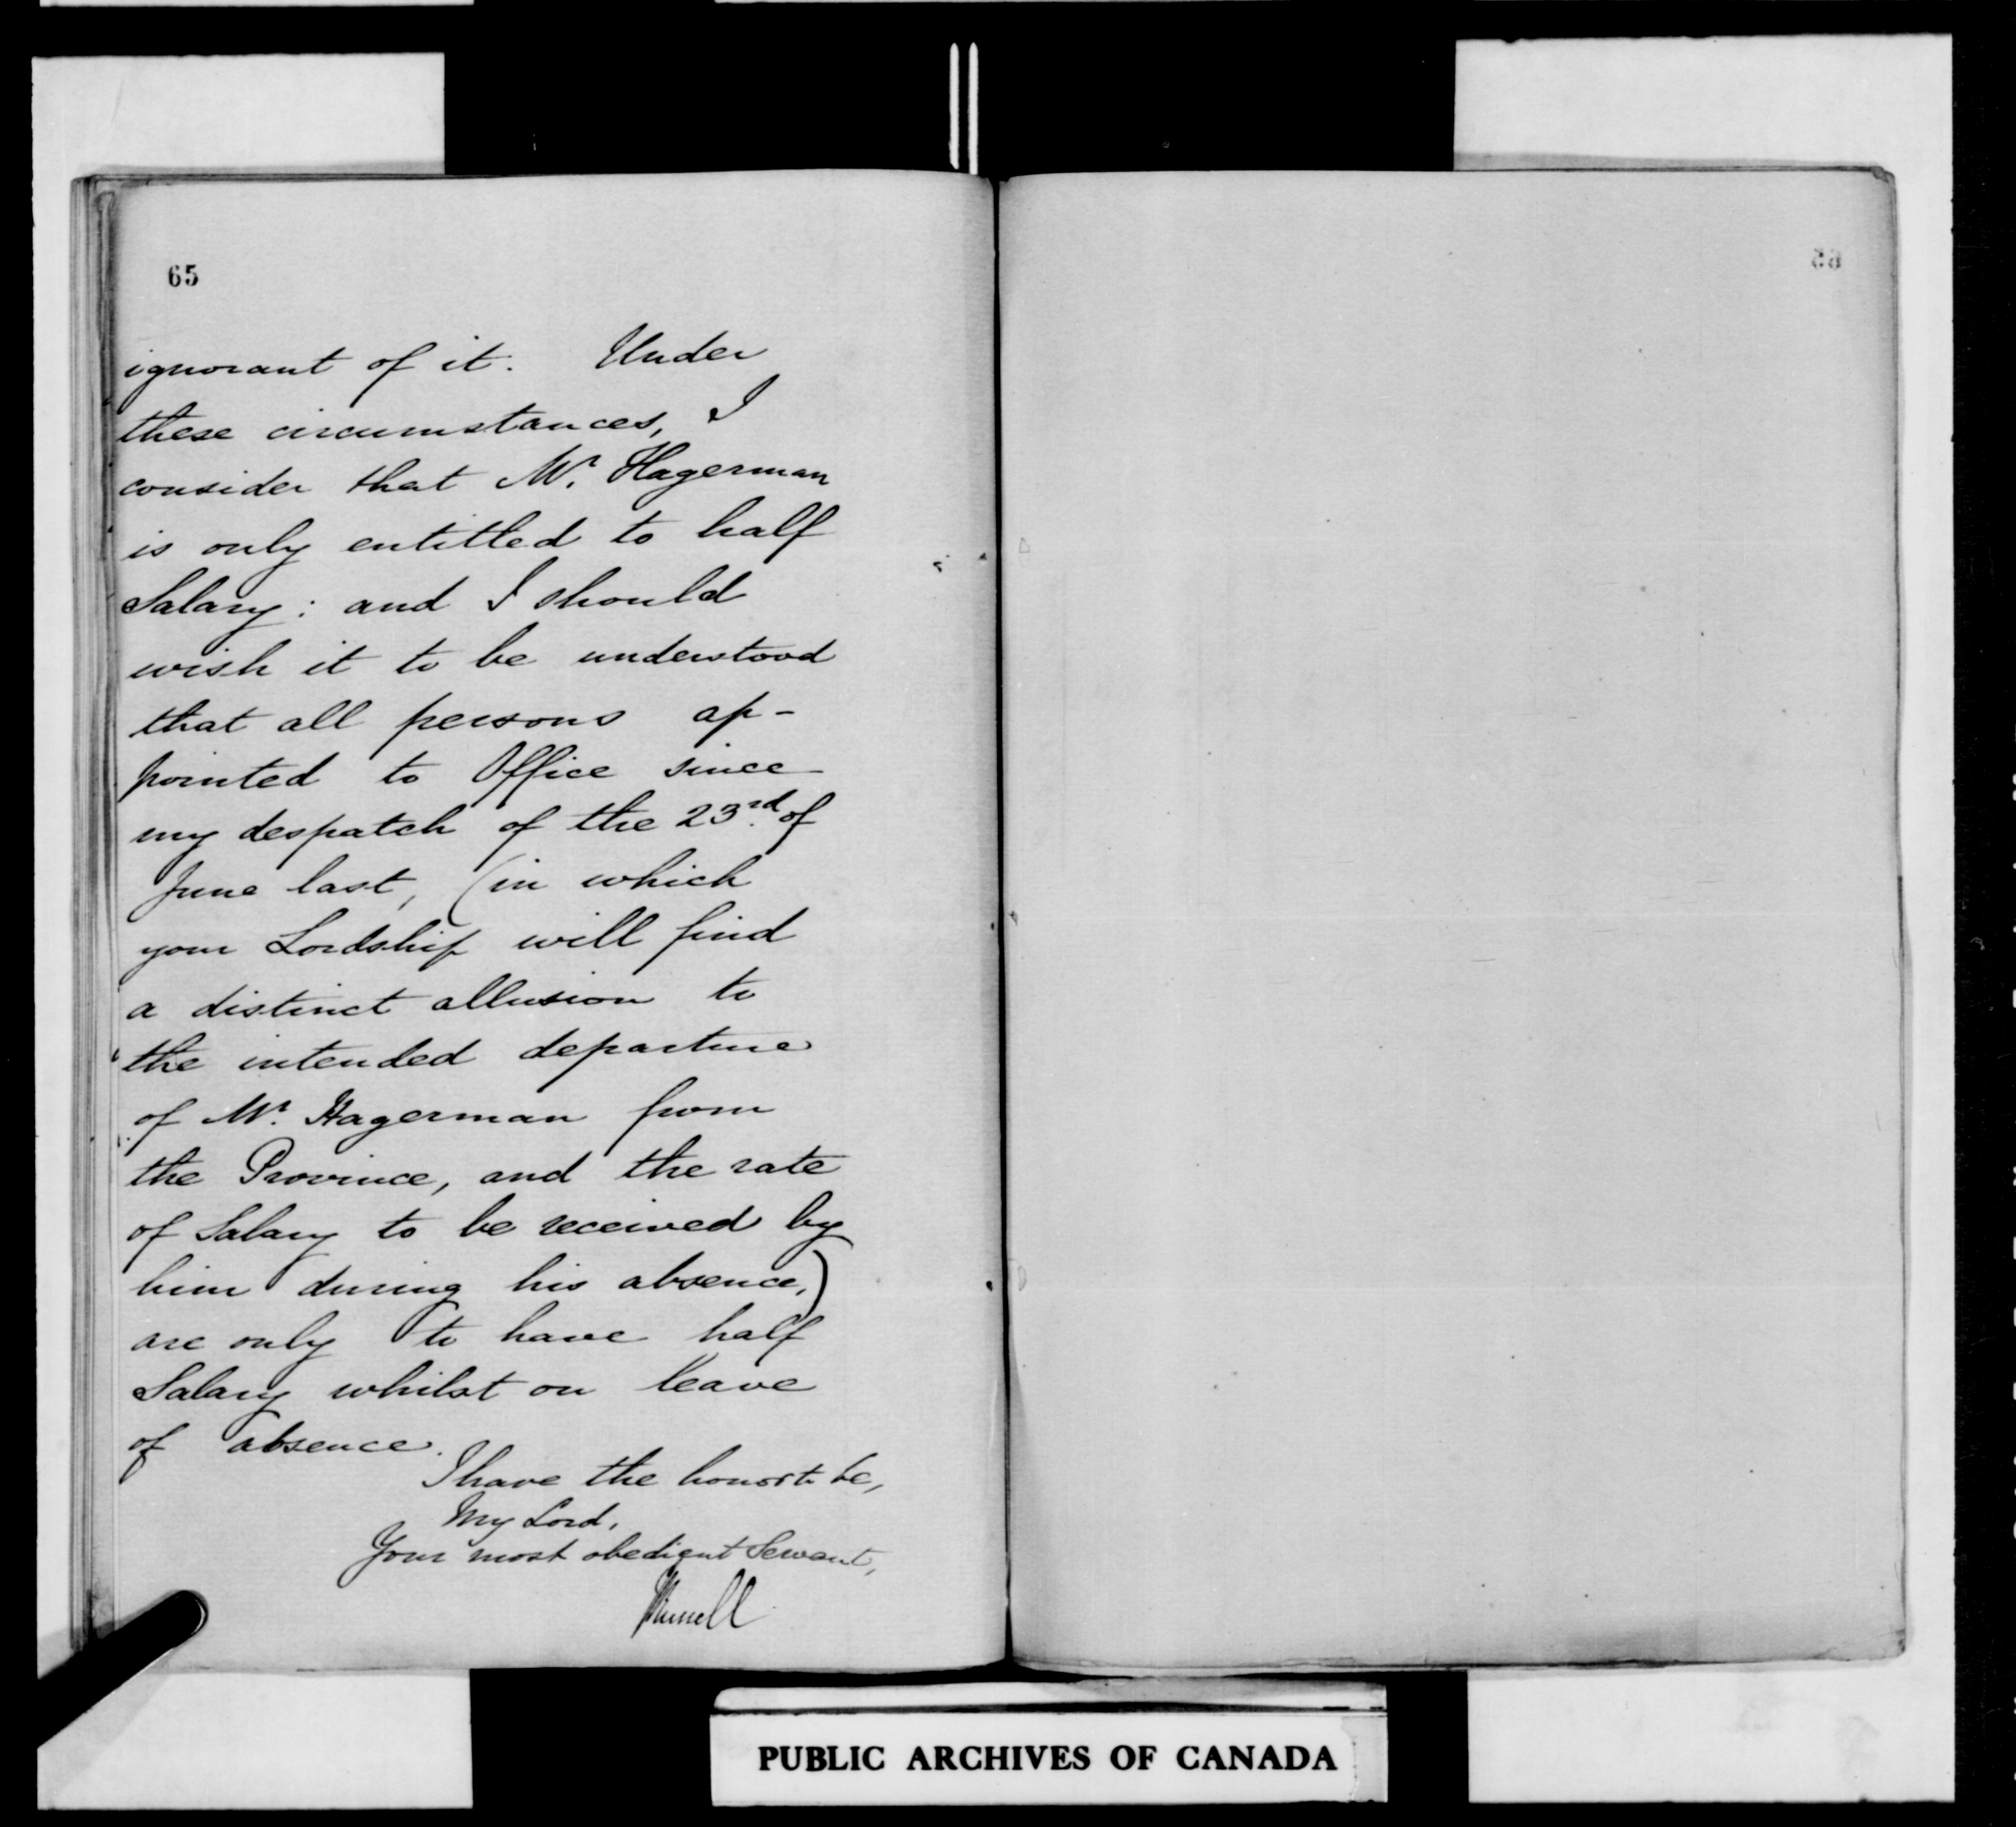 65
ignorant of it. Under
these circumstances, I
consider that Mr. Hagerman
is only entitled to half
Salary: and I should
wish it to be understood
that all persons ap-
pointed to Office since
my despatch of the 23rd of
June last, (in which
your Lordship will find
a distinct allusion to
the intended departure
of Mr. Hagerman from
the Province, and the rate
of Salary to be received by
him during his absence,)
are only to have half
Salary whilst on leave
of absence.
I have the honor to be,
My Lord,
Your most obedient Servant,
JRussell
PUBLIC ARCHIVES OF CANADA